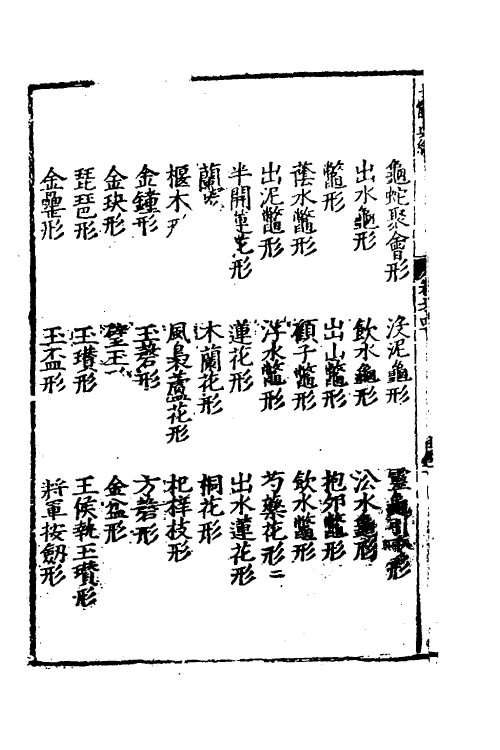 龜蛇聚會形 沒泥龜形 靈龜形
出水龜形 飲水龜形 㳂水龜形
鱉形 出山鱉形 抱卵鱉形
蔭水鱉形 顧子鱉形 飲水鱉形
出泥鱉形 浮水鱉形 芍藥花形二
半開蓮花形 蓮花形 出水蓮花形
蘭 木蘭花形 桐花形
椻木 風裊蘆花形 杞梓枝形
金鐘形 玉磬形 方磬形
金玦形 璧玉 金盆形
琵琶形 玉瓚形 王侯執玉瓚形
金罍形 玉盃形 將軍按劔形